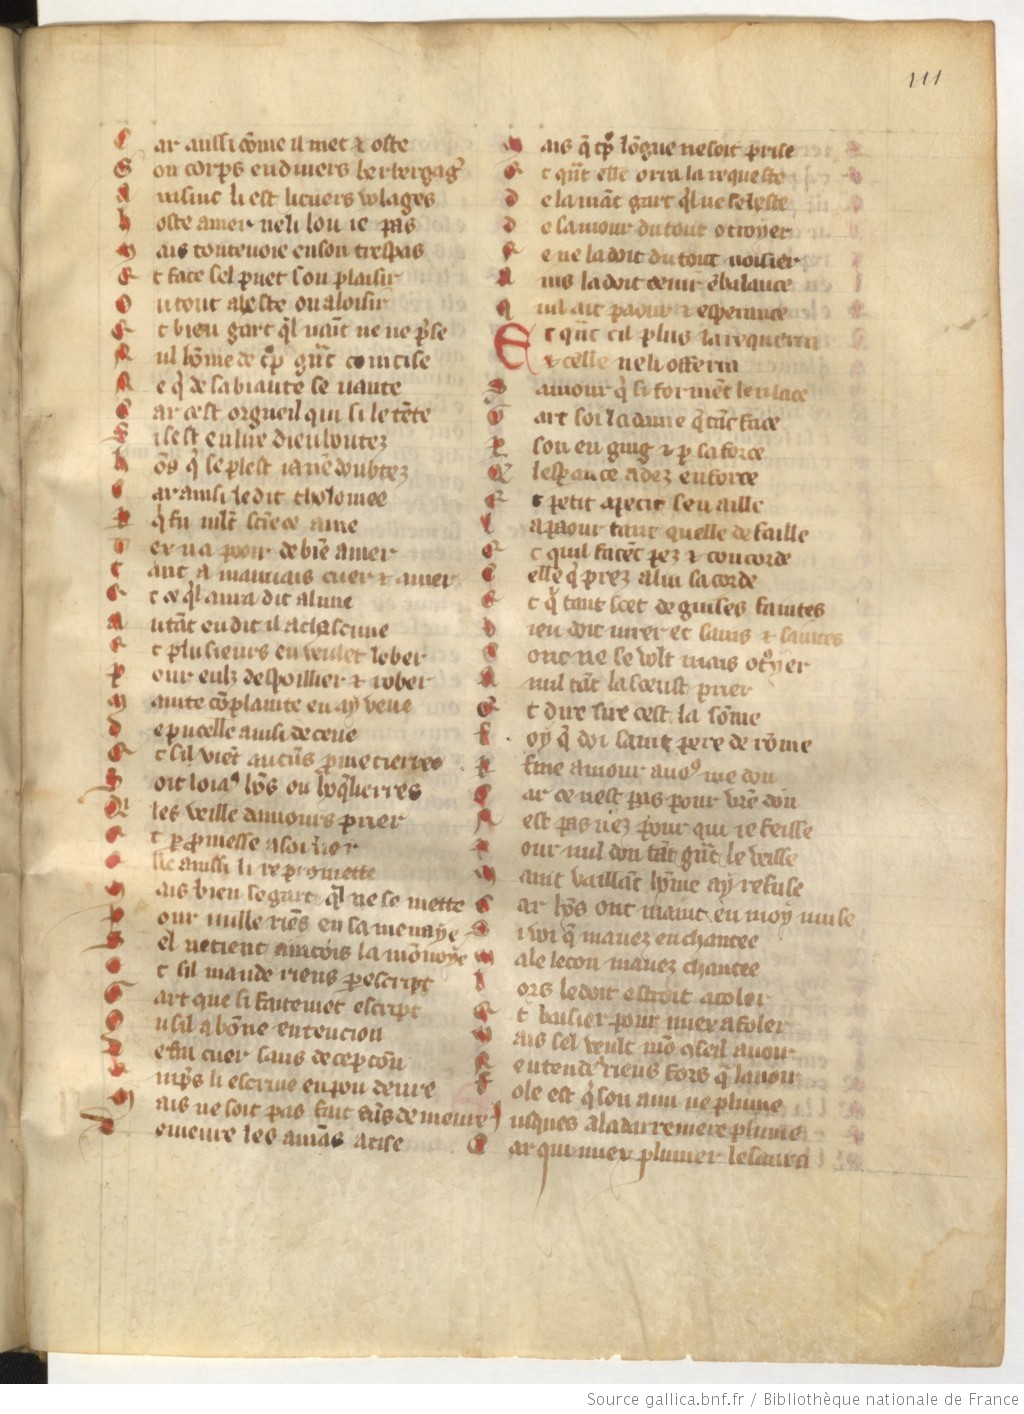 111
Car aussi cõme il met & oste
Son corps en diuers herbergag's
Aussinc li est li cuers volages
Hoste amer ne li lou ie pas
Mais toutenoie en son trespas
Et face sel puet son plaisir
Du tout a leste ou a loisir
Et bien gart q̃l uaĩt ne ne p̃se
Nul hõme de tp̃ gñt cointise
Ne q̃ de sa biaute se uante
Car cest orgueil qui si le tẽte
Si sest en lire dieu boutez
Hõs q̃ se plest ia nẽ doubtez
Car ainsi le dit tholomee
P q̃ fu mlt sciẽce amee
pooir de biẽ amer
Tant a mauuais cuer & amer
Et ce q̃l aura dit a lune
Autãt en dit il a chascune
Et plusieurs en veulet lober
Pour eulz despoillier & rober
Mainte cõplainte en ay veue
De pucelle ainsi deceue
Et sil viẽt aucũs pmetierres
Soit loiaˢ hõs ou hoq̃lierres
Qui les veille damours prier
Et p pmesse a soi lier
Elle aussi li repromette
Mais bien se gart q̃l ne se mette
Pour nulle riẽs en sa menaye
Sel ne tient aincois la mõnoye
Et sil mande riens p escript
Gart que si faitemet escript
Ou sil a bõne entencion
De fin cuer sans decepcõn
Amp̃s li escriue en pou deure
Mais ne soit pas fait sãs demeure
Demeure les amãs atise
Mais q̃ tp̃ lõgue ne soit prise
Et qñt elle orra la requeste
De lamãt gart q̃l ne se heste
De lamour du tout otroyer
Ne ne la doit du tout noisier
Ains la doit tenir ẽ balance
Quil ait paour & esperance
Et qñt cil plus la requerra
Et celle ne li offerra
Samour q̃ si formẽt lenlace
Gart soi la dame q̃ tãt face
P son enging & p sa force
Q lespance adez enforce
Et petit a petit sen aille
Lamour tant quelle defaille
Et quil facẽt pez & concorde
Celle q̃ prez a lui sacorde
Et q̃ tant scet de guises faintes
Dieu doit iurer et sains & saintes
Conc ne se volt mais ot°yer
A nul tãt la sceust prier
Et dire sire cest la sõme
Foy q̃ doi saint pere de rõme
P fine amour a uoˢ me don
Car ce nest pas pour vr̃e don
Nest pas nez pour qui ie feisse
Pour nul don tãt gñt le veisse
Maint vaillãt hõme ay refuse
Car hõs ont maint en moy muse
mauez enchantee
Male lecon mauez chantee
Lors le doit estroit acoler
Et baisier pour miex afoler
Mais sel veult mõ cseil auoir
Ne entende riens fors q̃ lauoir
Fole est q̃ son ami ne plume
Iusques a la darreniere plume
Car qui miex plumer le saura
Source gallica.bnf.fr / Bibliothèque nationale de France